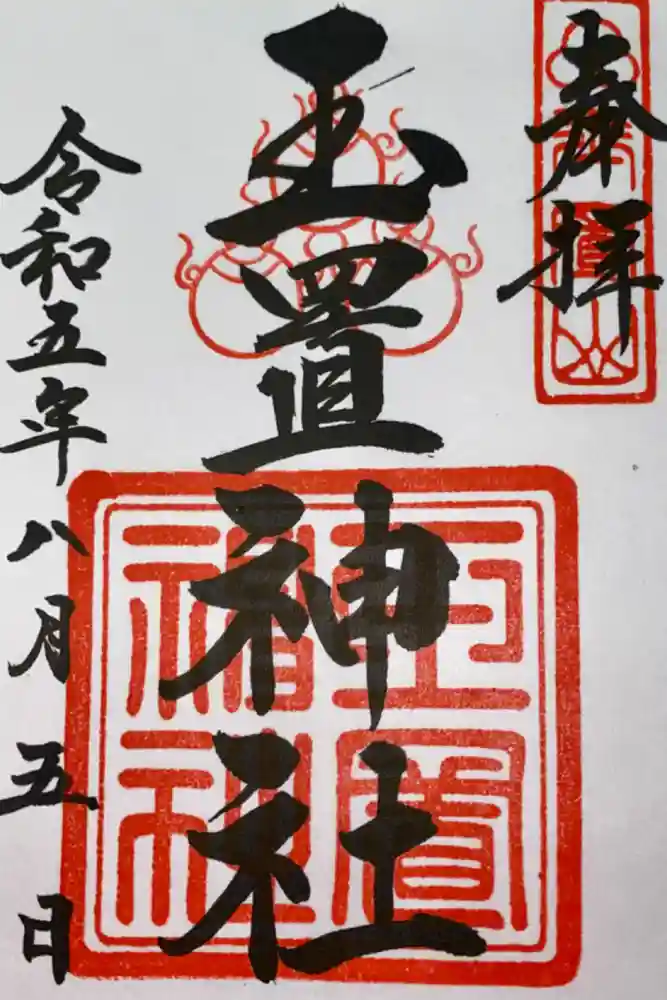 奉拝
玉置神社
玉置
神社
令和五年八月五日